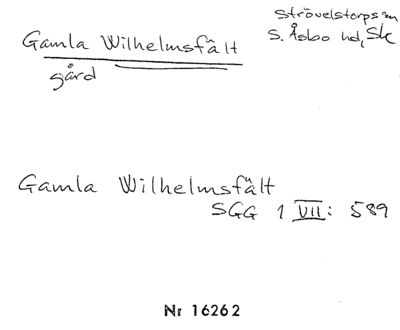 Gamla Wilhelmsfält
gård
Strövelstorps sn
S. Åsbo hd, Sk
Gamla Wilhelmsfält
SGG 1 VII: 589
Nr 16262